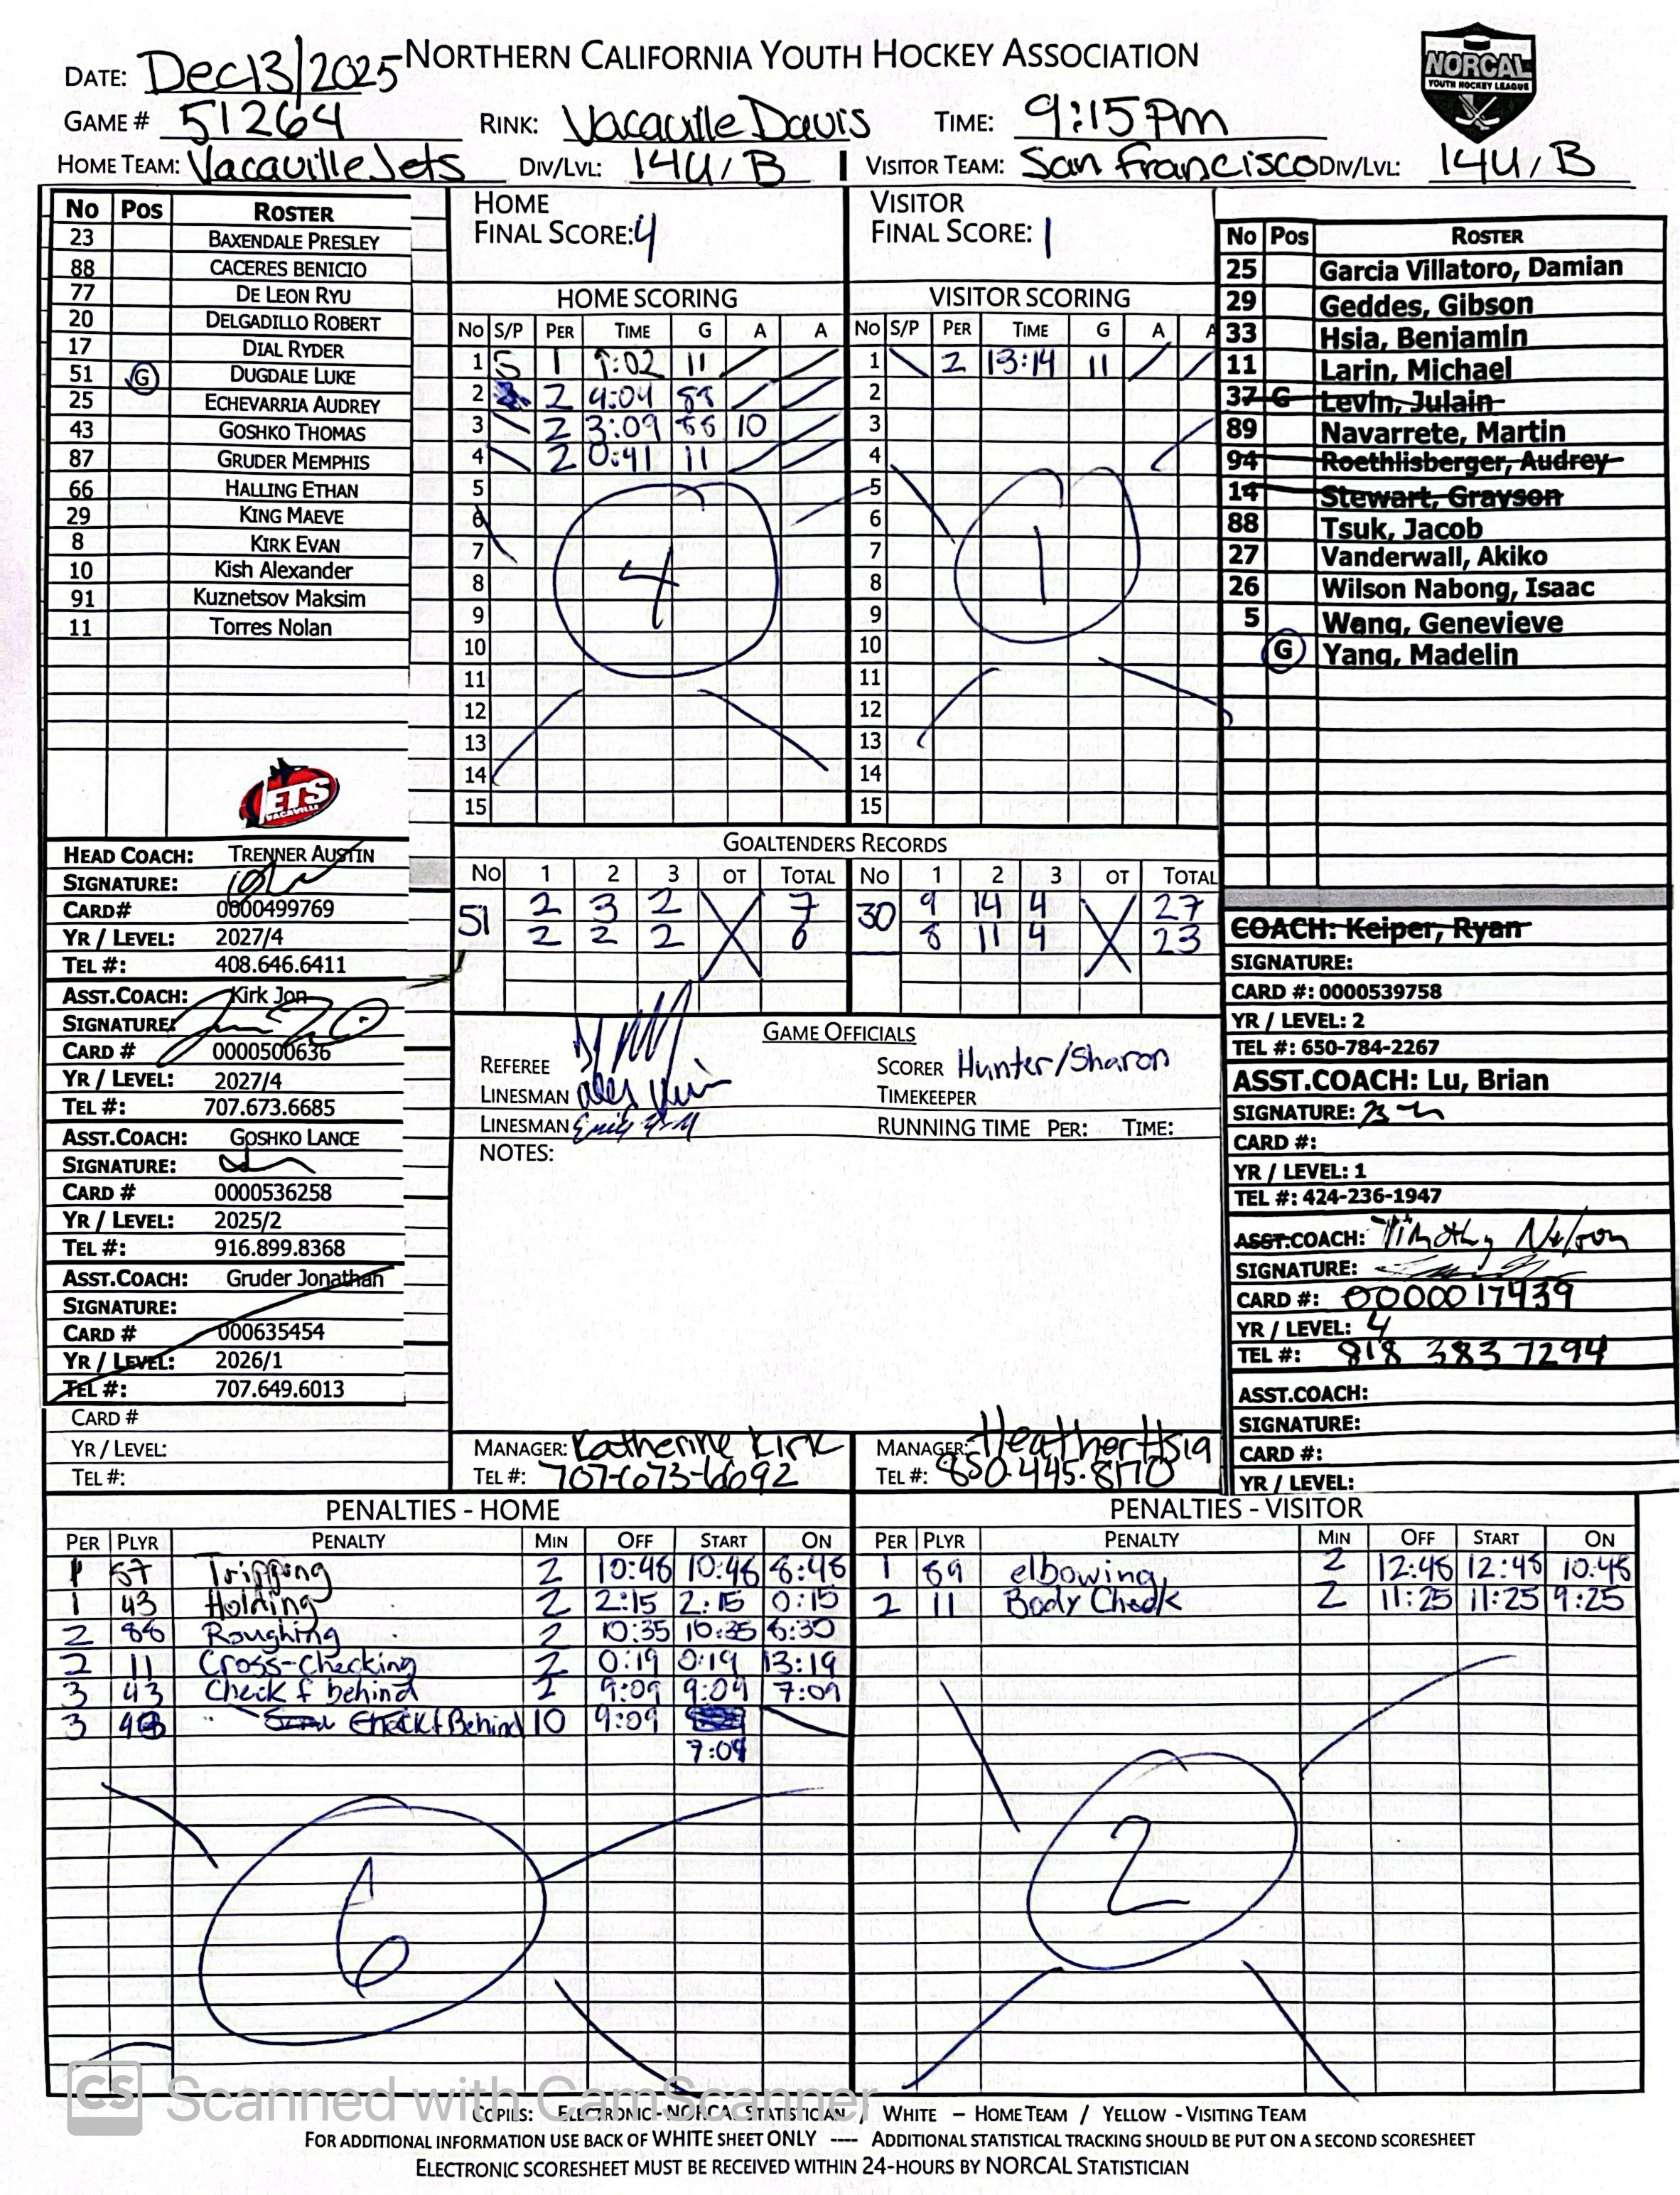 NORTHERN CALIFORNIA YOUTH HOCKEY ASSOCIATION
NORCAL
YOUTH HOCKEY LEAGUE
DATE: Dec13/2025
GAME # 51264 RINK: Vacaville Davis TIME: 9:15PM
HOME TEAM: Vacaville Jets DIV/LVL: 14U/B VISITOR TEAM: San Francisco DIV/LVL: 14U/B
No Pos ROSTER
23 BAXENDALE PRESLEY
88 CACERES BENICIO
77 DE LEON RYU
20 DELGADILLO ROBERT
17 DIAL RYDER
51 G DUGDALE LUKE
25 ECHEVARRIA AUDREY
43 GOSHKO THOMAS
87 GRUDER MEMPHIS
66 HALLING ETHAN
29 KING MAEVE
8 KIRK EVAN
10 Kish Alexander
91 Kuznetsov Maksim
11 Torres Nolan
JETS
VACAVILLE
HEAD COACH: TRENNER AUSTIN
SIGNATURE:
CARD# 0000499769
YR / LEVEL: 2027/4
TEL #: 408.646.6411
ASST.COACH: Kirk Jon
SIGNATURE:
CARD # 0000500636
YR / LEVEL: 2027/4
TEL #: 707.673.6685
ASST.COACH: GOSHKO LANCE
SIGNATURE:
CARD # 0000536258
YR / LEVEL: 2025/2
TEL #: 916.899.8368
ASST.COACH: Gruder Jonathan
SIGNATURE:
CARD # 000635454
YR / LEVEL: 2026/1
TEL #: 707.649.6013
CARD #
YR / LEVEL:
TEL #:
HOME
FINAL SCORE: 4
VISITOR
FINAL SCORE: 1
HOME SCORING
No S/P PER TIME G A A
1 S 1 1:02 11
2 2 9:04 88
3 2 3:09 10
4 2 0:41 11
5
6
7
8
9
10
11
12
13
14
15
4
VISITOR SCORING
No S/P PER TIME G A A
1 2 13:14 11
2
3
4
5
6
7
8
9
10
11
12
13
14
15
1
GOALTENDERS RECORDS
No 1 2 3 OT TOTAL No 1 2 3 OT TOTAL
51 2 3 2 7 30 9 14 4 27
2 2 2 6 8 11 4 23
GAME OFFICIALS
REFEREE SCORER Hunter/Sharon
LINESMAN TIMEKEEPER
LINESMAN RUNNING TIME PER: TIME:
NOTES:
MANAGER: Katherine Kirk MANAGER: Heather Hsia
TEL #: 707-673-6692 TEL #: 850.445.8170
No Pos ROSTER
25 Garcia Villatoro, Damian
29 Geddes, Gibson
33 Hsia, Benjamin
11 Larin, Michael
37 G Levin, Julain
89 Navarrete, Martin
94 Roethlisberger, Audrey
14 Stewart, Grayson
88 Tsuk, Jacob
27 Vanderwall, Akiko
26 Wilson Nabong, Isaac
5 Wang, Genevieve
G Yang, Madelin
COACH: Keiper, Ryan
SIGNATURE:
CARD #: 0000539758
YR / LEVEL: 2
TEL #: 650-784-2267
ASST.COACH: Lu, Brian
SIGNATURE:
CARD #:
YR / LEVEL: 1
TEL #: 424-236-1947
ASST.COACH: Timothy Nelson
SIGNATURE:
CARD #: 0000017439
YR / LEVEL: 4
TEL #: 818 383 7294
ASST.COACH:
SIGNATURE:
CARD #:
YR / LEVEL:
PENALTIES - HOME
PER PLYR PENALTY MIN OFF START ON
1 Tripping 2 10:46 10:46 8:46
1 43 Holding 2 2:15 2:15 0:15
2 88 Roughing 2 10:35 10:35
2 11 Cross-checking 2 0:19 0:19 13:19
3 43 Check f behind 2 9:09 9:09 7:09
3 43 " Check f Behind 10 9:09
7:09
6
PENALTIES - VISITOR
PER PLYR PENALTY MIN OFF START ON
1 89 elbowing 2 12:48 12:48 10:48
2 11 Body Check 2 11:25 11:25 9:25
2
CS Scanned with CamScanner
COPIES: ELECTRONIC-NORCAL STATISTICIAN / WHITE – HOME TEAM / YELLOW - VISITING TEAM
FOR ADDITIONAL INFORMATION USE BACK OF WHITE SHEET ONLY ---- ADDITIONAL STATISTICAL TRACKING SHOULD BE PUT ON A SECOND SCORESHEET
ELECTRONIC SCORESHEET MUST BE RECEIVED WITHIN 24-HOURS BY NORCAL STATISTICIAN